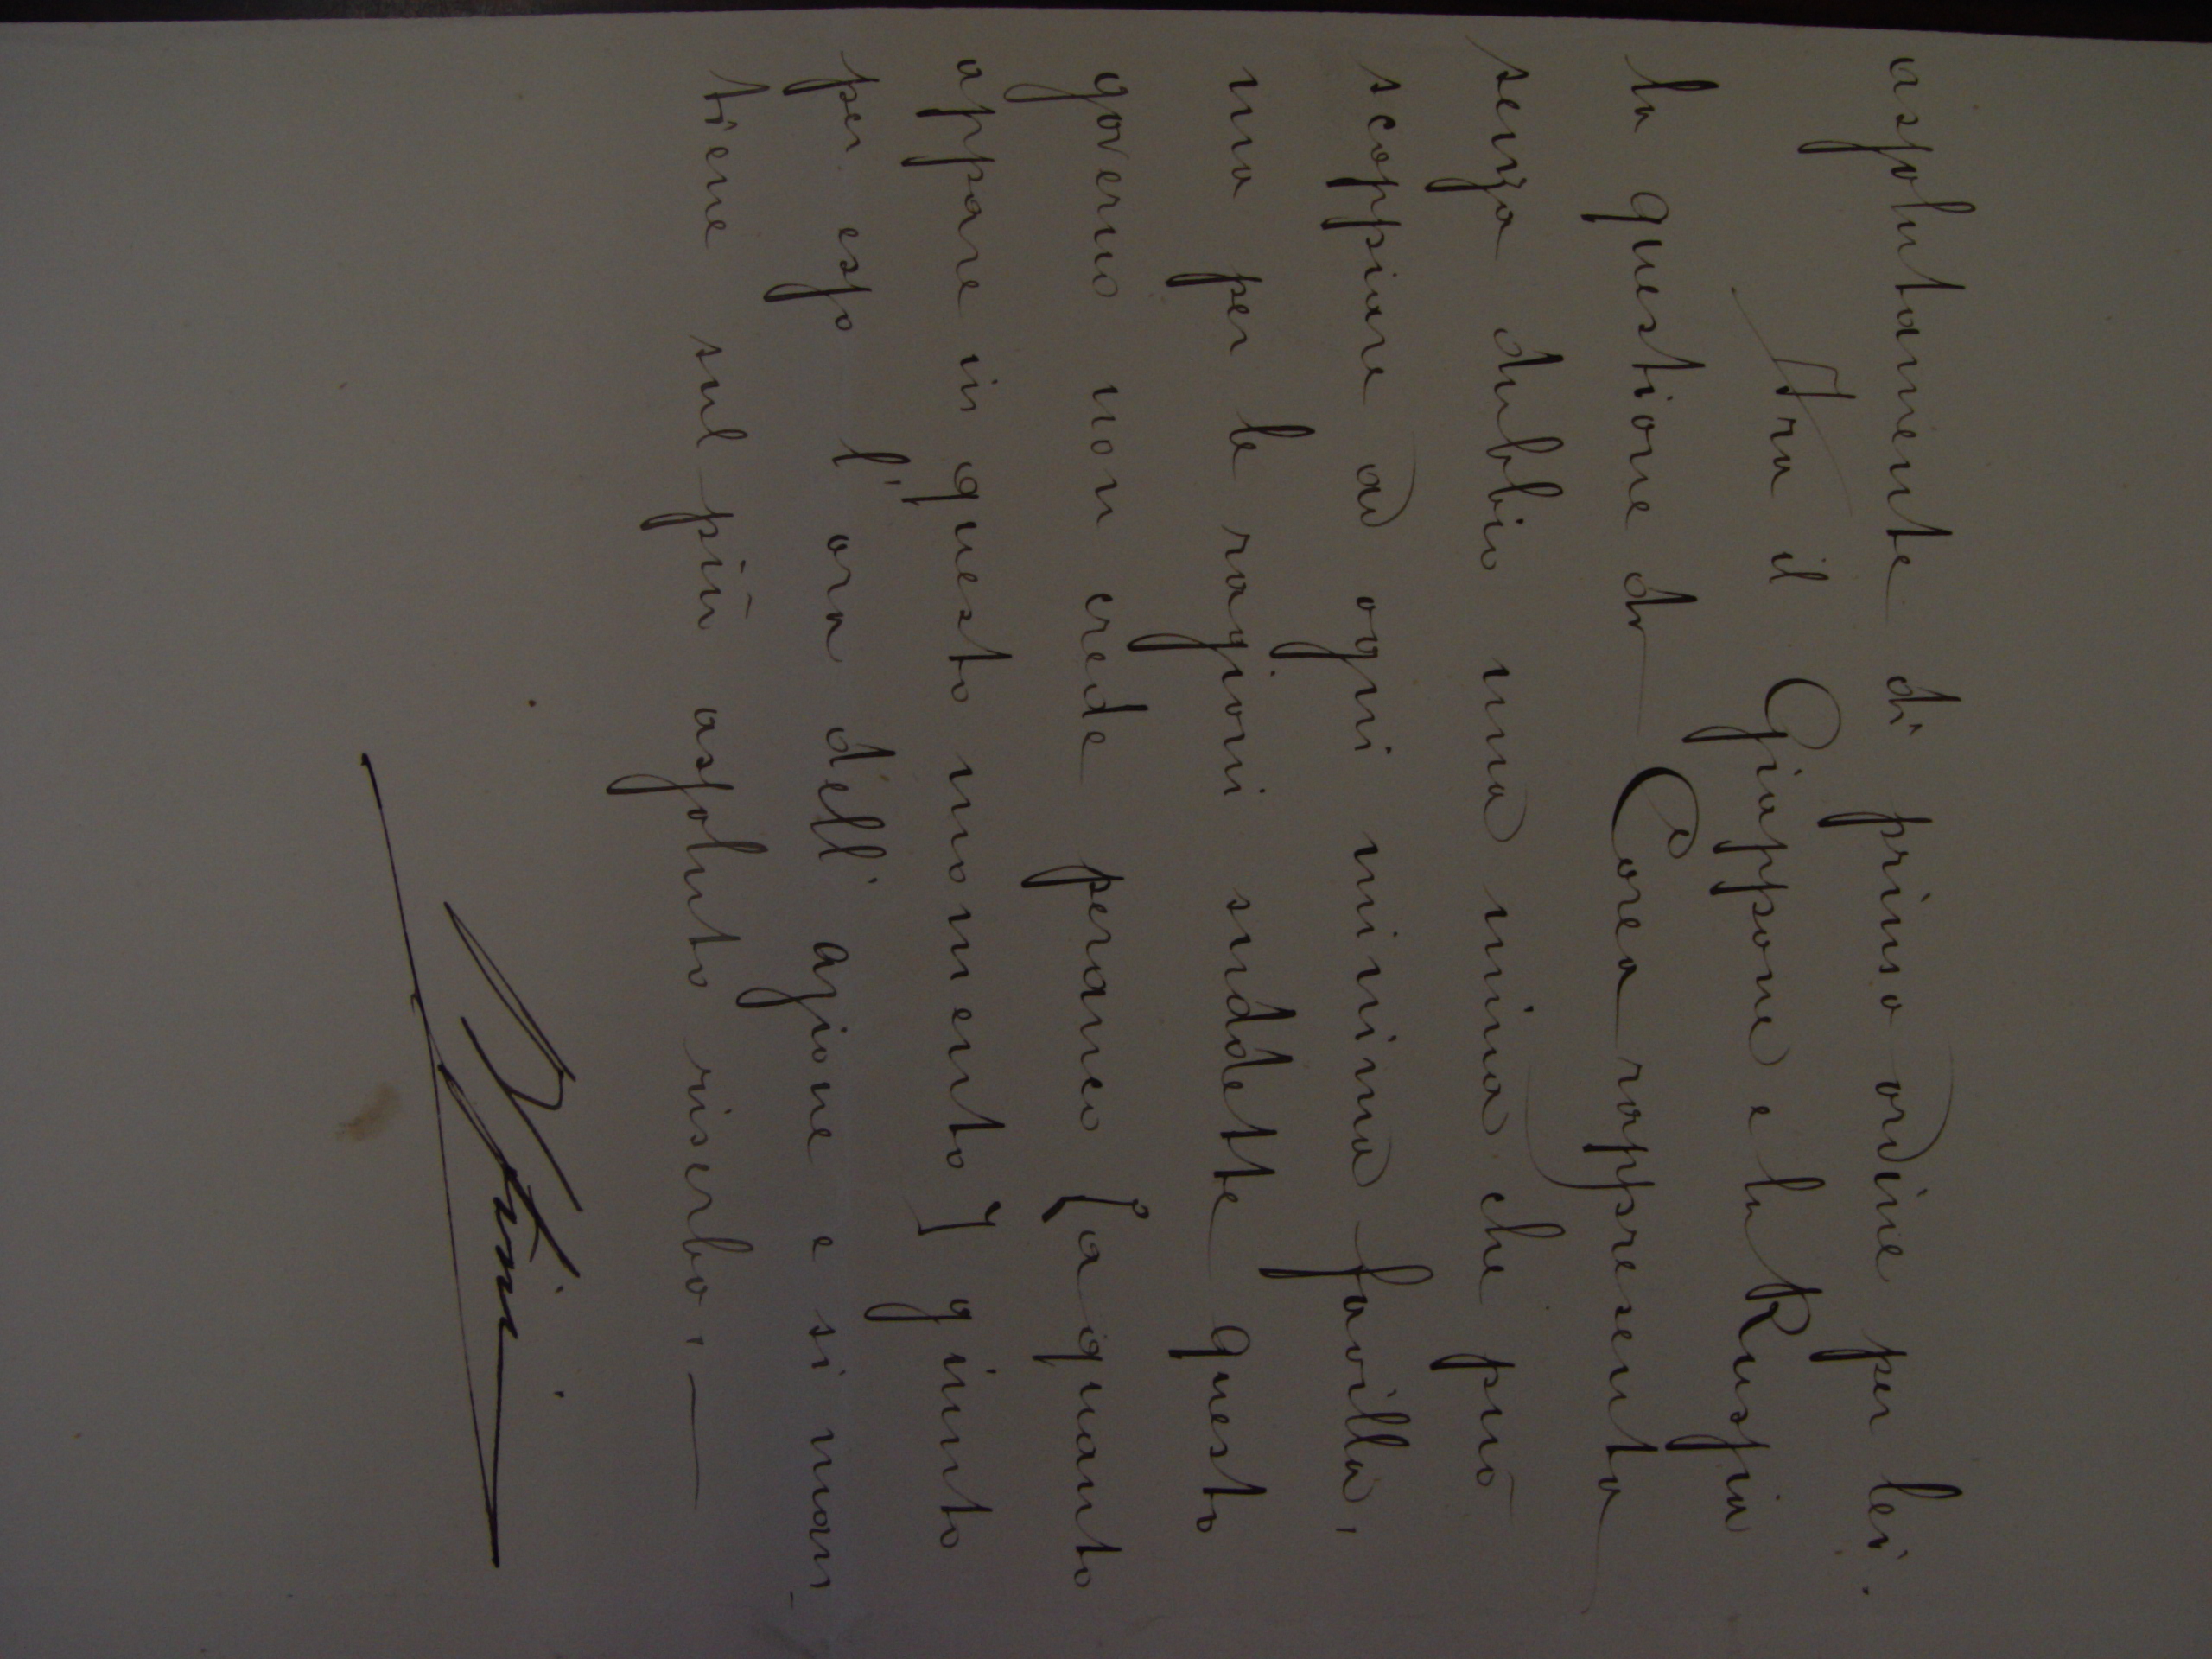 assolutamente di primo ordine per lei.
Fra il Giappone e la Russia
la questione di Corea rappresenta
senza dubbio una mina che può
scoppiare ad ogni minima favilla,
ma per le ragioni suddette questo
governo non crede peranco [a quanto
appare in questo momento] giunto
per esso l'ora dell'azione e si man-
tiene sul più assoluto riserbo. —